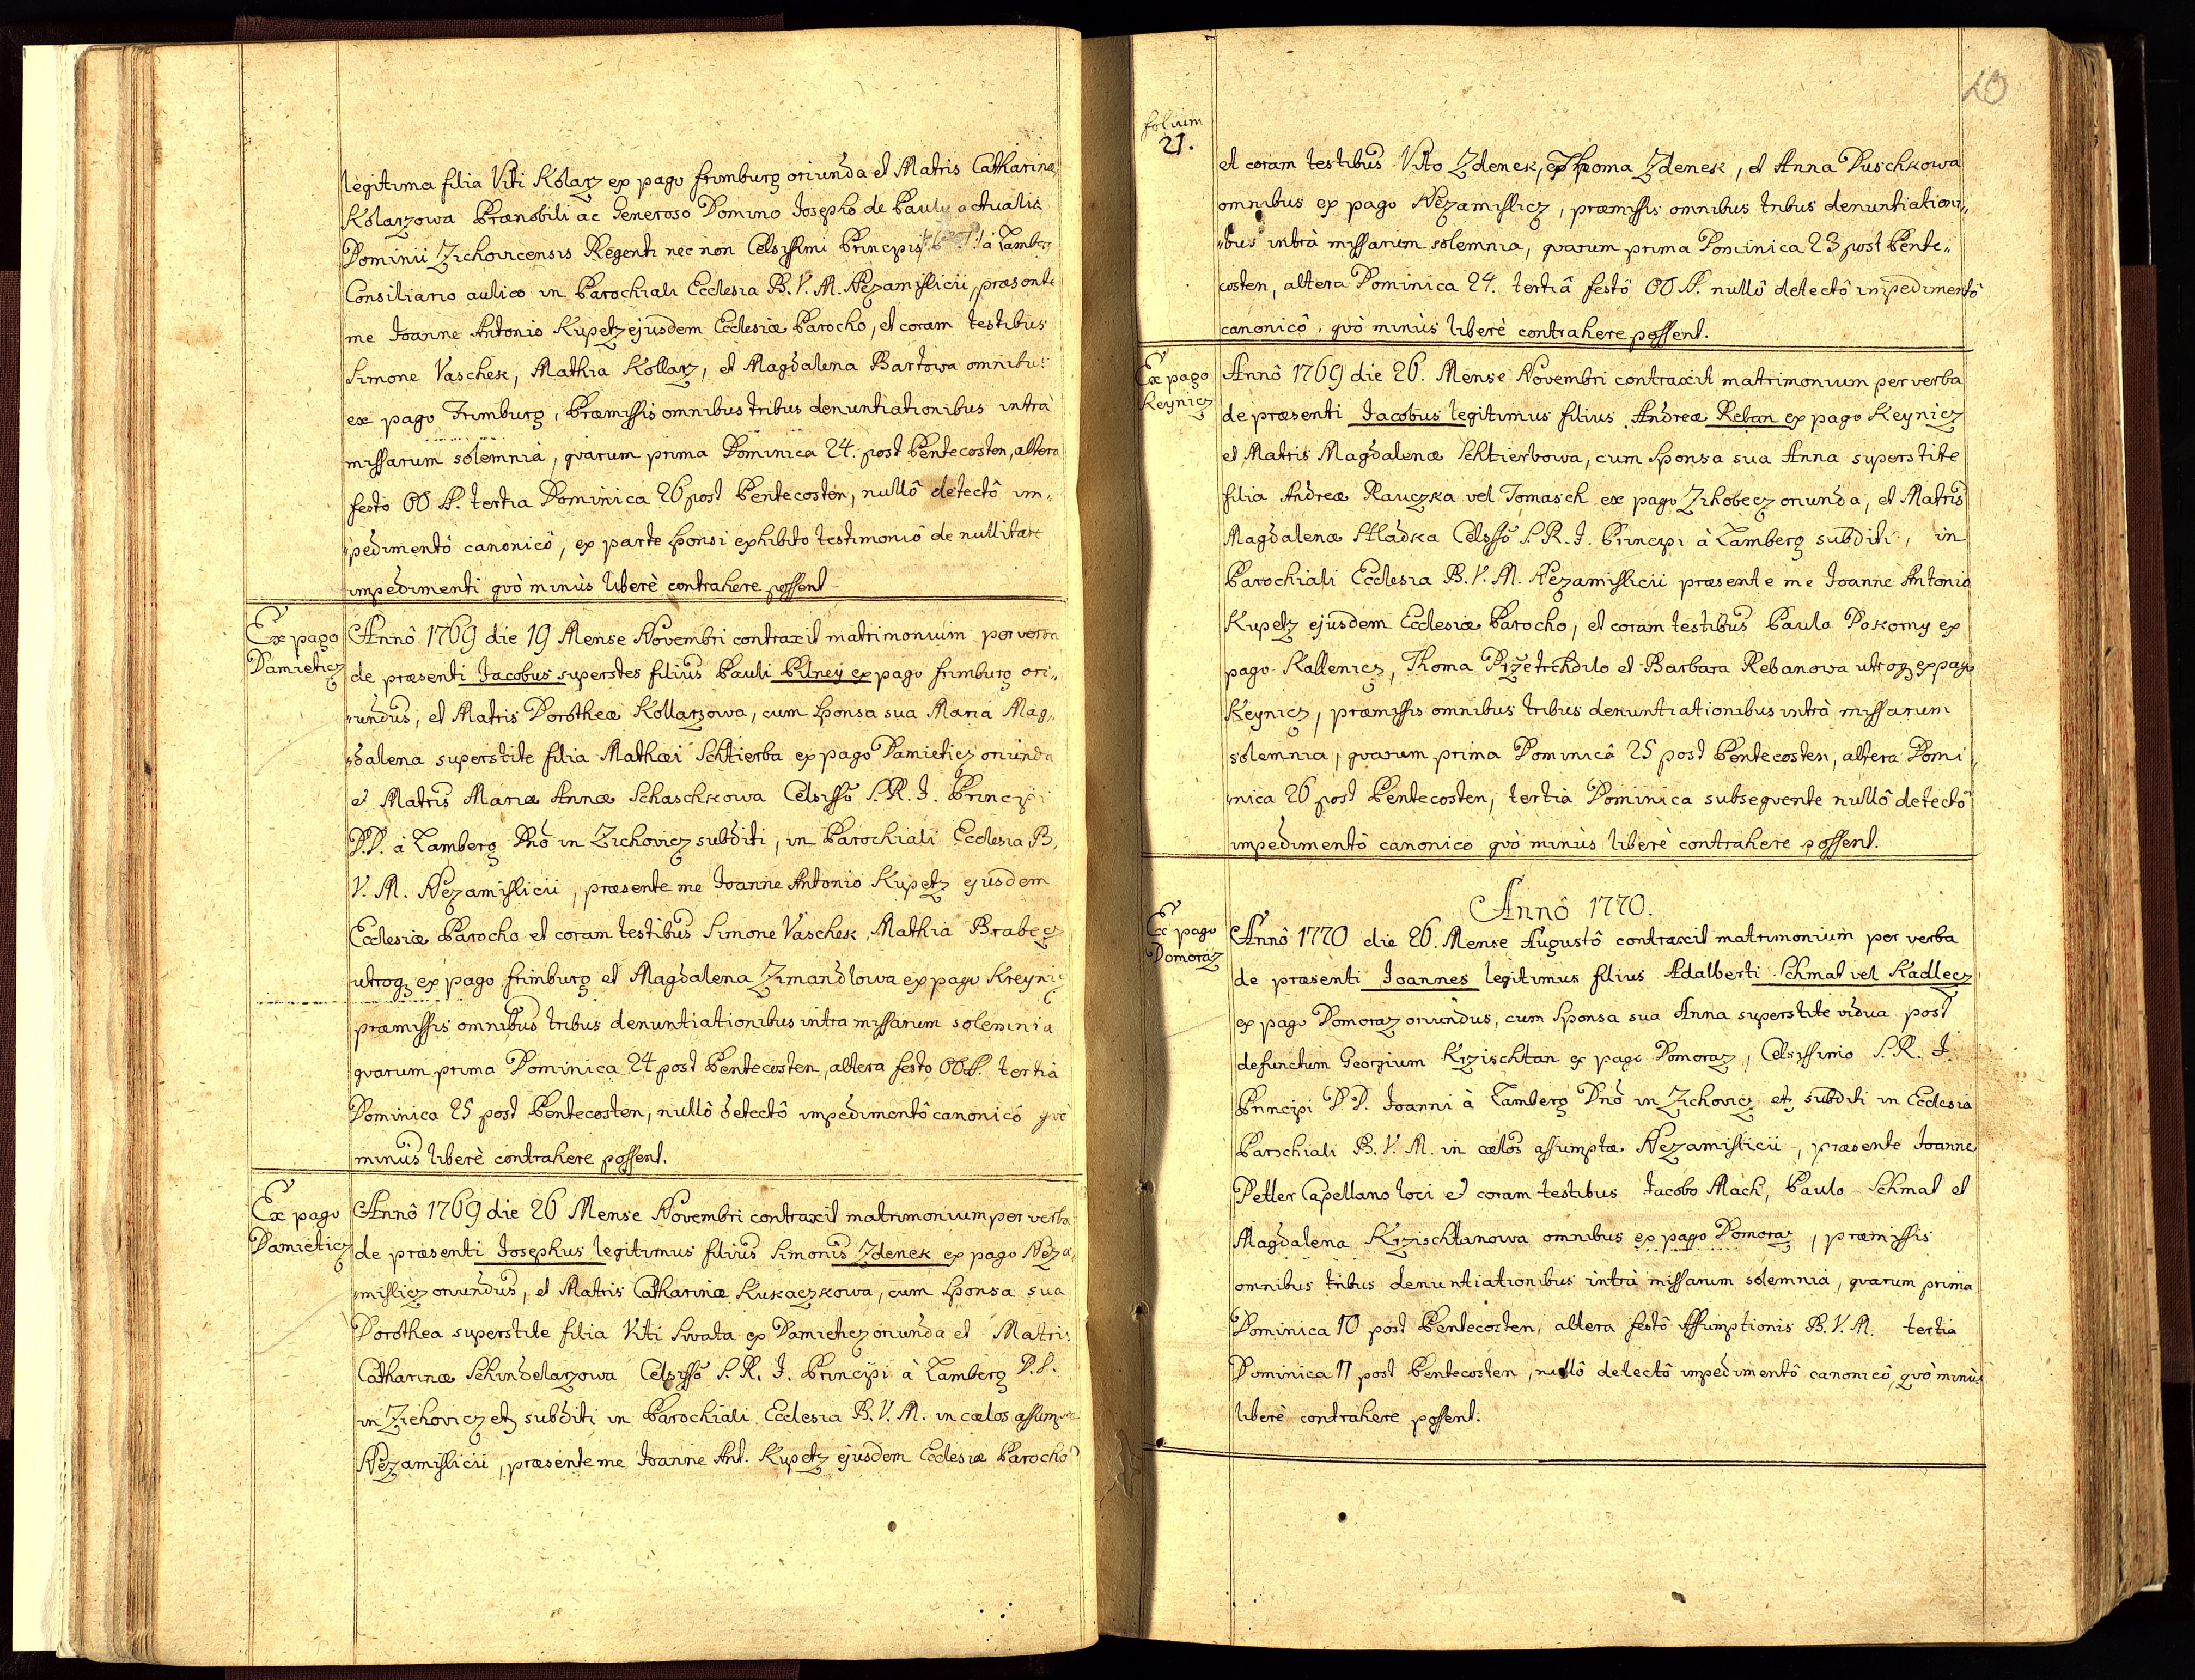 legitima filia Viti Kolarz ex pago frimburg oriunda et Matris Catharinæ
Kolarzowa Prænobili ac Generoso Domino Josepho de Pauly actualis
Dominii Zichovicensis Regenti nec non Celsissimi Principis à Lamberg
Consiliario aulico in Parochiali Ecclesia B. V. M. Nezamislicii, præsente
me Joanne Antonio Kupetz ejusdem Ecclesiæ Parocho, et coram testibus
Simone Vaschek, Mathia Kollarz, et Magdalena Bartowa omnibus
ex pago Frimburg, Præmissis omnibus tribus denuntiationibus intrà
missarum solemnià, qvarum prima Dominica 24. post Pentecosten, altera
festo OO SS. tertia Dominica 26 post Pentecosten, nullô detectô im„
„pedimentô canonicô, ex parte sponsi exhibito testimoniô de nullitate
impedimenti qvò minùs liberè contrahere possent
Ex pago
Damieticz
Annô 1769 die 19 Mense Novembri contraxit matrimonium per verba
de præsenti Jacobus superstes filius Pauli Pilney ex pago frimburg ori„
„undus, et Matris Dorotheæ Kollarzowa, cum sponsa sua Maria Mag„
„dalena superstite filia Mathæi Schtierba ex pago Damieticz oriunda
et Matris Mariæ Annæ Schaschkowa Celsissô S. R. I. Principi
D.D. à Lamberg Dnô in Zichovicz subditi, in Parochiali Ecclesia B.
V. M. Nezamislicii, præsente me Joanne Antonio Kupetz ejusdem
Ecclesiæ Parocho et coram testibus Simone Vaschek, Mathia Brabecz
utroq; ex pago frimburg et Magdalena Zimandlowa ex pago Kreynicz
præmissis omnibus tribus denuntiationibus intra missarum solemnia
qvarum prima Dominica 24 post Pentecosten, altera festo OO SS. tertia
Dominica 25 post Pentecosten, nullô detectô impedimentô canonicô qvò
minùs liberè contrahere possent.
Ex pago
Damieticz
Annô 1769 die 26 Mense Novembri contraxit matrimonium per verba
de præsenti Josephus legitimus filius Simonis Zdenek ex pago Neza„
„mislicz oriundus, et Matris Catharinæ Kukaczkowa, cum sponsa sua
Dorothea superstite filia Viti Swata ex Damieticz oriunda et Matris
Catharinæ Schindelarzowa Celsissô S. R. I. Principi à Lamberg D.D.
in Zichovicz etz subditi in Parochiali Ecclesia B. V. M. in cælos assumptæ
Nezamislicii, præsente me Joanne Ant. Kupetz ejusdem Ecclesiæ Parocho
20
folium
21.
et coram testibus Vito Zdenek, Thoma Zdenek, et Anna Duschkowa
omnibus ex pago Nezamislicz, præmissis omnibus tribus denuntiationi„
„bus intrà missarum solemnia, qvarum prima Dominica 23 post Pente„
costen, altera Dominica 24. tertiâ festô OO SS. nullô detectô impedimentô
canonicô, qvò minùs liberè contrahere possent.
Ex pago
Keynicz
Annô 1769 die 26. Mense Novembri contraxit matrimonium per verba
de præsenti Jacobus legitimus filius Andreæ Reban ex pago Keynicz
et Matris Magdalenæ Schtierbowa, cum Sponsa sua Anna superstite
filia Andreæ Rauczka vel Tomasch ex pago Zihobecz oriunda, et Matris
Magdalenæ Hladka Celsssô S. R. I. Principi à Lamberg subditi, in
Parochiali Ecclesia B. V. M. Nezamislicii præsente me Joanne Antonio
Kupetz ejusdem Ecclesiæ Parocho, et coram testibus Paulo Pokorny ex
pago Kallenicz, Thoma Przetrhdilo et Barbara Rebanowa utroq; ex pago
Keynicz, præmissis omnibus tribus denuntiationibus intrà missarum
solemnia, qvarum prima Dominicâ 25 post Pentecosten, altera Domi„
„nica 26 post Pentecosten, tertià Dominica subseqvente nullô detectô
impedimentô canonico qvò minùs liberè contrahere possent.
Annô 1770.
Ex pago
Domoraz
Annô 1770 die 26. Mense Augustô contraxit matrimonium per verba
de præsenti Joannes legitimus filius Adalberti Schmat vel Kadlecz
ex pago Domoraz oriundus, cum Sponsa sua Anna superstite vidua post
defunctum Georgium Krzischtan ex pago Domoraz, Celsissimo S. R. I.
Principi D D. Joanni à Lamberg Dnô in Zichovicz etz subditi in Ecclesia
Parochiali B. V. M. in cælos assumptæ Nezamislicii, præsente Joanne
Petler Capellano loci et coram testibus Jacobo Mach, Paulo Schmat et
Magdalena Krzischtanowa omnibus ex pago Domoraz, præmissis
omnibus tribus denuntiationibus intrà missarum solemnia, qvarum prima
Dominica 10 post Pentecosten, altera festô Assumptionis B. V. M. tertia
Dominica 11 post Pentecosten, nullô detectô impedimentô canonicô, qvò minùs
liberè contrahere possent.